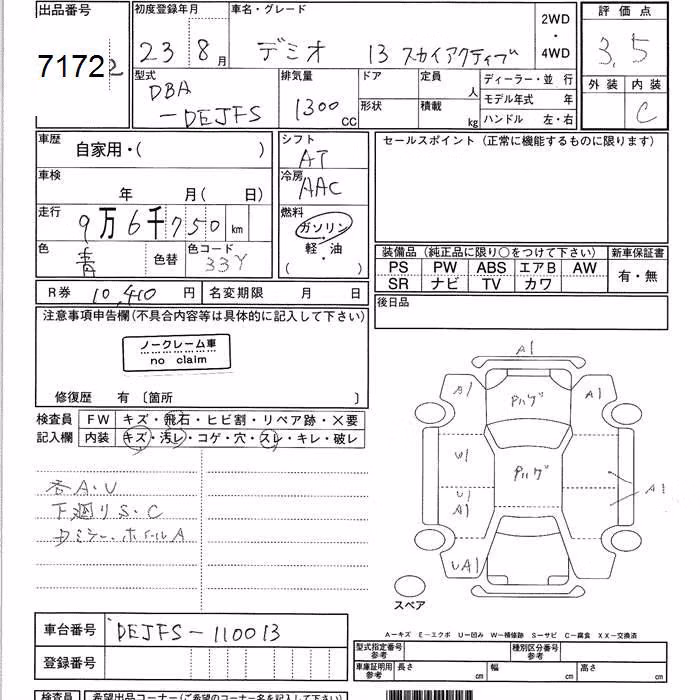 出品番号 初度登録年月 車名・グレード 2WD ・ 4WD 評価点
7172 23 8月 デミオ 13 スカイアクティブ 3.5
型式 排気量 ドア 定員 人 ディーラー・並 行 外装 内装
DBA
-DEJFS 1300cc 形状 積載 kg モデル年式 年 C
ハンドル 左・右
車歴 自家用・( ) シフト AT セールスポイント(正常に機能するものに限ります)
車検 年 月( 日) 冷房 AAC
走行 9万6千750km 燃料 ガソリン
軽・油
( )
色 青 色替 色コード 33Y 装備品(純正品に限り○をつけて下さい) 新車保証書
PS PW ABS エアB AW 有・無
SR ナビ TV カワ
R券 10,410円 名変期限 月 日 後日品
注意事項申告欄(不具合内容等は具体的に記入して下さい)
ノークレーム車
no claim
修復歴 有 〔箇所 〕
検査員 FW キズ・飛石・ヒビ割・リペア跡・X要
記入欄 内装 キズ・汚レ・コゲ・穴・スレ・キレ・破レ
各A・U
下廻りS・C
ホイールA
A1
A1 A1
W1
U1
A1 A1
UA1
スペア
A-キズ E-エクボ U-凹み W-補修跡 S-サビ C-腐食 XX-交換済
車台番号 DEJFS-110013
登録番号
型式指定番号 参考 種別区分番号 参考
車庫証明用 参考 長さ cm 幅 cm 高さ cm
検査員 希望出品コーナー(ご希望のコーナー名を記入して下さい)